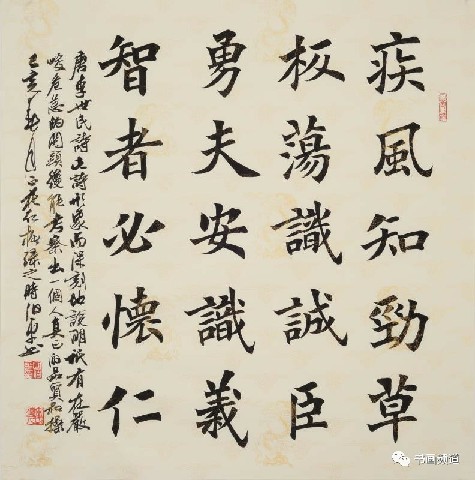 疾風知勁草
板蕩識誠臣
勇夫安識義
智者必懷仁
唐李世民詩此詩形象而深刻地說明祇有在嚴
峻危急的關頭纔能考察出一個人真正的品質和操
己亥月之時
书国频道